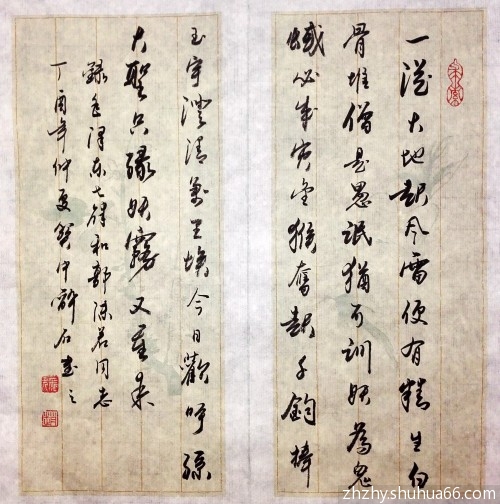 一從大地起风雷便有精生白
骨堆僧是愚氓猶可訓妖為鬼
蜮必成灾金猴奮起千鈞棒
玉宇澄清萬里埃今日歡呼孫
大聖只緣妖霧又重來
錄毛澤東七律和郭沫若同志
丁酉年仲夏石書之
zhzhyshuhua66.com